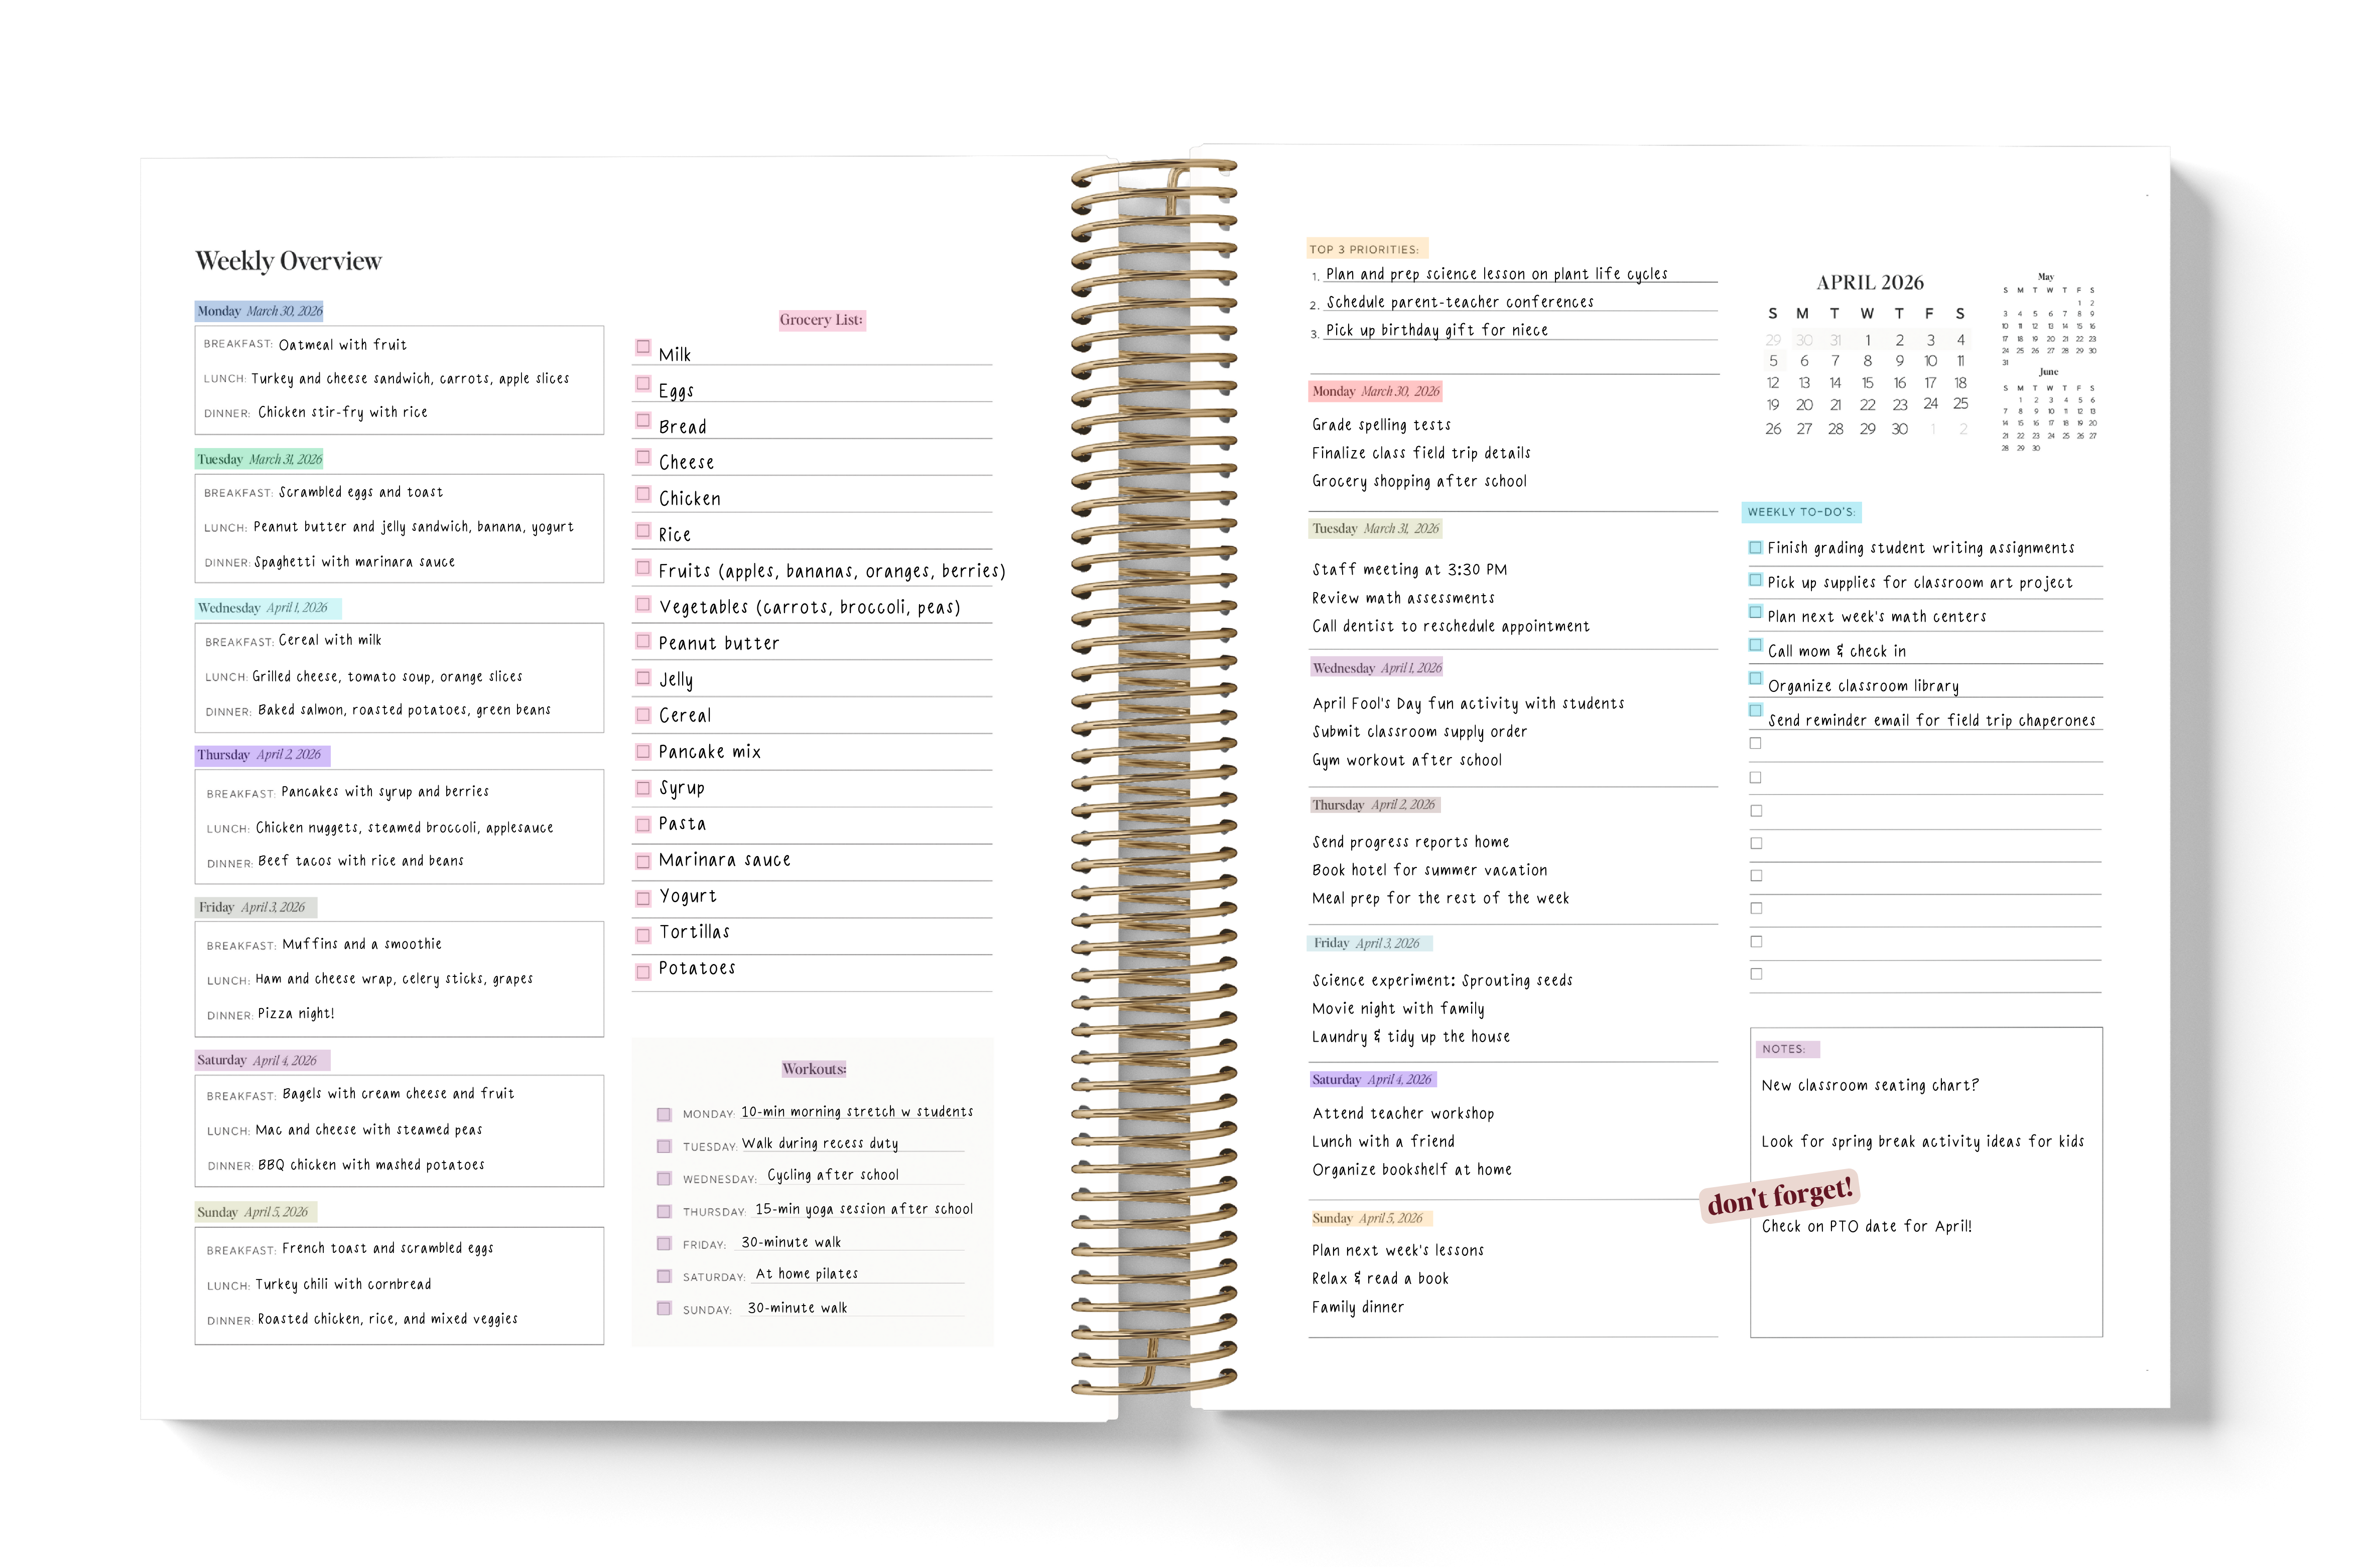 Weekly Overview
Monday March 30, 2026
BREAKFAST: Oatmeal with fruit
LUNCH: Turkey and cheese sandwich, carrots, apple slices
DINNER: Chicken stir-fry with rice
Tuesday March 31, 2026
BREAKFAST: Scrambled eggs and toast
LUNCH: Peanut butter and jelly sandwich, banana, yogurt
DINNER: Spaghetti with marinara sauce
Wednesday April 1, 2026
BREAKFAST: Cereal with milk
LUNCH: Grilled cheese, tomato soup, orange slices
DINNER: Baked salmon, roasted potatoes, green beans
Thursday April 2, 2026
BREAKFAST: Pancakes with syrup and berries
LUNCH: Chicken nuggets, steamed broccoli, applesauce
DINNER: Beef tacos with rice and beans
Friday April 3, 2026
BREAKFAST: Muffins and a smoothie
LUNCH: Ham and cheese wrap, celery sticks, grapes
DINNER: Pizza night!
Saturday April 4, 2026
BREAKFAST: Bagels with cream cheese and fruit
LUNCH: Mac and cheese with steamed peas
DINNER: BBQ chicken with mashed potatoes
Sunday April 5, 2026
BREAKFAST: French toast and scrambled eggs
LUNCH: Turkey chili with cornbread
DINNER: Roasted chicken, rice, and mixed veggies
Grocery List:
Milk
Eggs
Bread
Cheese
Chicken
Rice
Fruits (apples, bananas, oranges, berries)
Vegetables (carrots, broccoli, peas)
Peanut butter
Jelly
Cereal
Pancake mix
Syrup
Pasta
Marinara sauce
Yogurt
Tortillas
Potatoes
Workouts:
MONDAY: 10-min morning stretch w students
TUESDAY: Walk during recess duty
WEDNESDAY: Cycling after school
THURSDAY: 15-min yoga session after school
FRIDAY: 30-minute walk
SATURDAY: At home pilates
SUNDAY: 30-minute walk
TOP 3 PRIORITIES:
1. Plan and prep science lesson on plant life cycles
2. Schedule parent-teacher conferences
3. Pick up birthday gift for niece
Monday March 30, 2026
Grade spelling tests
Finalize class field trip details
Grocery shopping after school
Tuesday March 31, 2026
Staff meeting at 3:30 PM
Review math assessments
Call dentist to reschedule appointment
Wednesday April 1, 2026
April Fool's Day fun activity with students
Submit classroom supply order
Gym workout after school
Thursday April 2, 2026
Send progress reports home
Book hotel for summer vacation
Meal prep for the rest of the week
Friday April 3, 2026
Science experiment: Sprouting seeds
Movie night with family
Laundry & tidy up the house
Saturday April 4, 2026
Attend teacher workshop
Lunch with a friend
Organize bookshelf at home
Sunday April 5, 2026
Plan next week's lessons
Relax & read a book
Family dinner
APRIL 2026
S M T W T F S
29 30 31 1 2 3 4
5 6 7 8 9 10 11
12 13 14 15 16 17 18
19 20 21 22 23 24 25
26 27 28 29 30 1 2
May
S M T W T F S
1 2
3 4 5 6 7 8 9
10 11 12 13 14 15 16
17 18 19 20 21 22 23
24 25 26 27 28 29 30
31
June
S M T W T F S
1 2 3 4 5 6
7 8 9 10 11 12 13
14 15 16 17 18 19 20
21 22 23 24 25 26 27
28 29 30
WEEKLY TO-DO'S:
Finish grading student writing assignments
Pick up supplies for classroom art project
Plan next week's math centers
Call mom & check in
Organize classroom library
Send reminder email for field trip chaperones
NOTES:
New classroom seating chart?
Look for spring break activity ideas for kids
don't forget!
Check on PTO date for April!